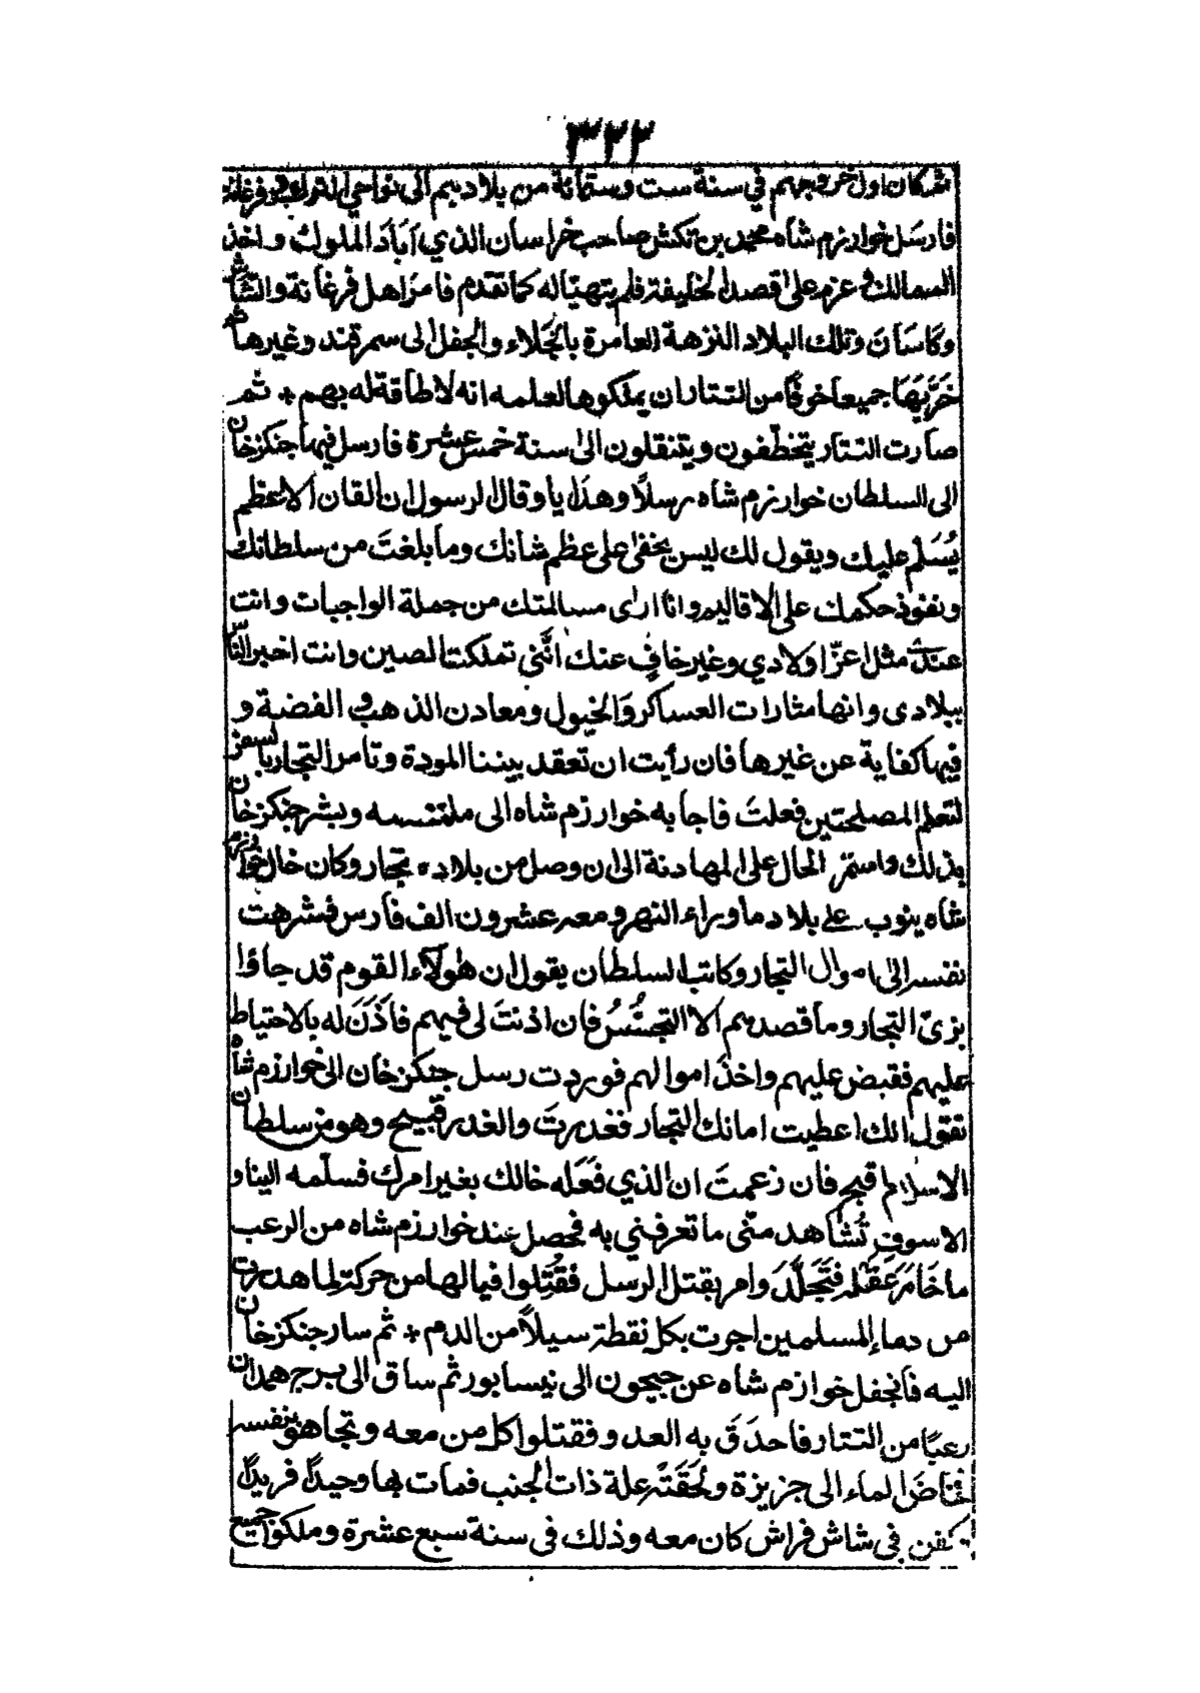 ٣٢٢
ثم كان اول خروجهم في سنة ست وستمائة من بلادهم الى نواحي الترك وفرغانة
فارسل خوارزم شاه محمد بن تكش صاحب خراسان الذي اَبَادَ الملوك و اخذ
الممالك و عزم على قصد الخليفة فلم يتهيّاله كما تقدم فامرَ اهل فرغانة والشاش
وكَاسَانَ وتلك البلاد النزهة العامرة بالجَلاء والجفل الى سمرقند وغيرها ثم
خَرَّبَهَا جميعا خوفًا من التتار ان يملكوها لعلمه انه لا طاقة له بهم + ثم
صارت التتار يتخطّفون و يتنقلون الى سنة خمس عشرة فارسل فيها جنكزخان
الى السلطان خوارزم شاه رسلًا وهدايا وقال الرسول ان القان الاعظم
يُسَلّم عليك ويقول لك ليس يخفى على عظم شانك وما بلغتَ من سلطانك
ونفوذ حكمك على الاقاليم وانا ارى مسالمتك من جملة الواجبات وانت
عندي مثل اعزّ اولادي وغير خافٍ عنك انّني تملكت الصين وانت اخبر النّاس
ببلادى وانها مثارات العساكر وَالخيول ومعادن الذهب و الفضة و
فيها كفاية عن غيرها فان رأيت ان تعقد بيننا المودة وتامر التجار بالسفر
لتعلم المصلحتين فعلتَ فاجابه خوارزم شاه الى ملتمسه وبشر جنكزخان
بذلك واستمرّ الحال على المهادنة الى ان وصل من بلاده تجار وكان خال خوارزم
شاه ينوب على بلاد ماوراء النهر ومعه عشرون الف فارس فشرهت
نفسه الى اموال التجار وكاتب السلطان يقول ان هٰولآء القوم قد جاؤا
بزىّ التجار وما قصدهم الا التجسُّسُ فان اذنتَ لى فيهم فأَذَنَ له بالاحتياط
عليهم فقبض عليهم واخذ اموالهم فوردت رسل جنكزخان الى خوارزم شاه
تقول انك اعطيت امانك التجار فغدرتَ والغدر قبيح وهو من سلطان
الاسلام اقبح فان زعمتَ ان الذي فَعَله خالك بغير امرك فسلّمه الينا و
الا سوفِ تُشاهد منّى ما تعرفني به فحصل عند خوارزم شاه من الرعب
ما خَامَرَ عَقْله فتَجَلَّدَ وامر بقتل الرسل فقُتِلوا فيالها من حركة لما هدرت
من دماء المسلمين اجرت بكل نقطة سيلاً من الدم + ثم سار جنكزخان
اليه فانجفل خوازم شاه عن جيحون الى نيسابور ثم ساق الى برج همدان
رعبًا من التتار فاحدَقَ به العدو فقتلوا كل من معه ونجا هو بنفسه
فخاضَ الماء الى جزيزة ولحَقَتْه علة ذات الجنب فمات بها وحيدًا فريدًا
وكفن في شاش فراش كان معه وذلك فى سنة سبع عشرة وملكوا جميع